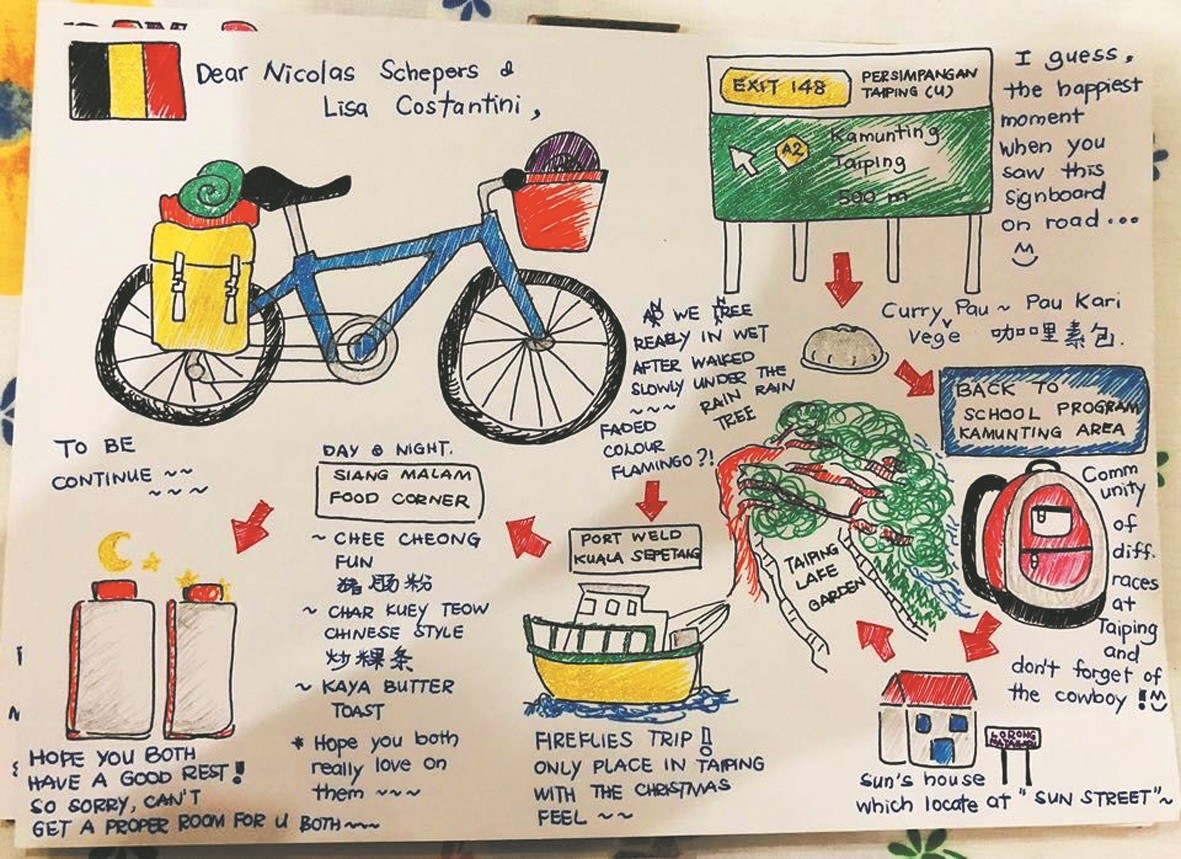 Dear Nicolas Schepers &
Lisa Costantini,
EXIT 148
PERSIMPANGAN
TAIPING (U)
A2
Kamunting
Taiping
500 m
I guess,
the happiest
moment
when you
saw this
signboard
on road...
Curry Vege Pau ~ Pau Kari
咖哩素包.
BACK TO
SCHOOL PROGRAM
KAMUNTING AREA
Comm
unity
of
diff.
races
at
Taiping
and
don't forget of
the cowboy !
Sun's house
which locate at "SUN STREET"~
LORONG
TAIPING
LAKE
GARDEN
WE
REALLY IN WET
AFTER WALKED
SLOWLY UNDER THE
~~~ RAIN RAIN
TREE
FADED
COLOUR
FLAMINGO?!
PORT WELD
KUALA SEPETANG
FIREFLIES TRIP !!
ONLY PLACE IN TAIPING
WITH THE CHRISTMAS
FEEL ~~
DAY & NIGHT.
SIANG MALAM
FOOD CORNER
~ CHEE CHEONG
FUN
猪肠粉
~ CHAR KUEY TEOW
CHINESE STYLE
炒粿条
~ KAYA BUTTER
TOAST
* Hope you both
really love on
them ~~~
TO BE
CONTINUE ~~
~~~
HOPE YOU BOTH
HAVE A GOOD REST!
SO SORRY, CAN'T
GET A PROPER ROOM FOR U BOTH~~~